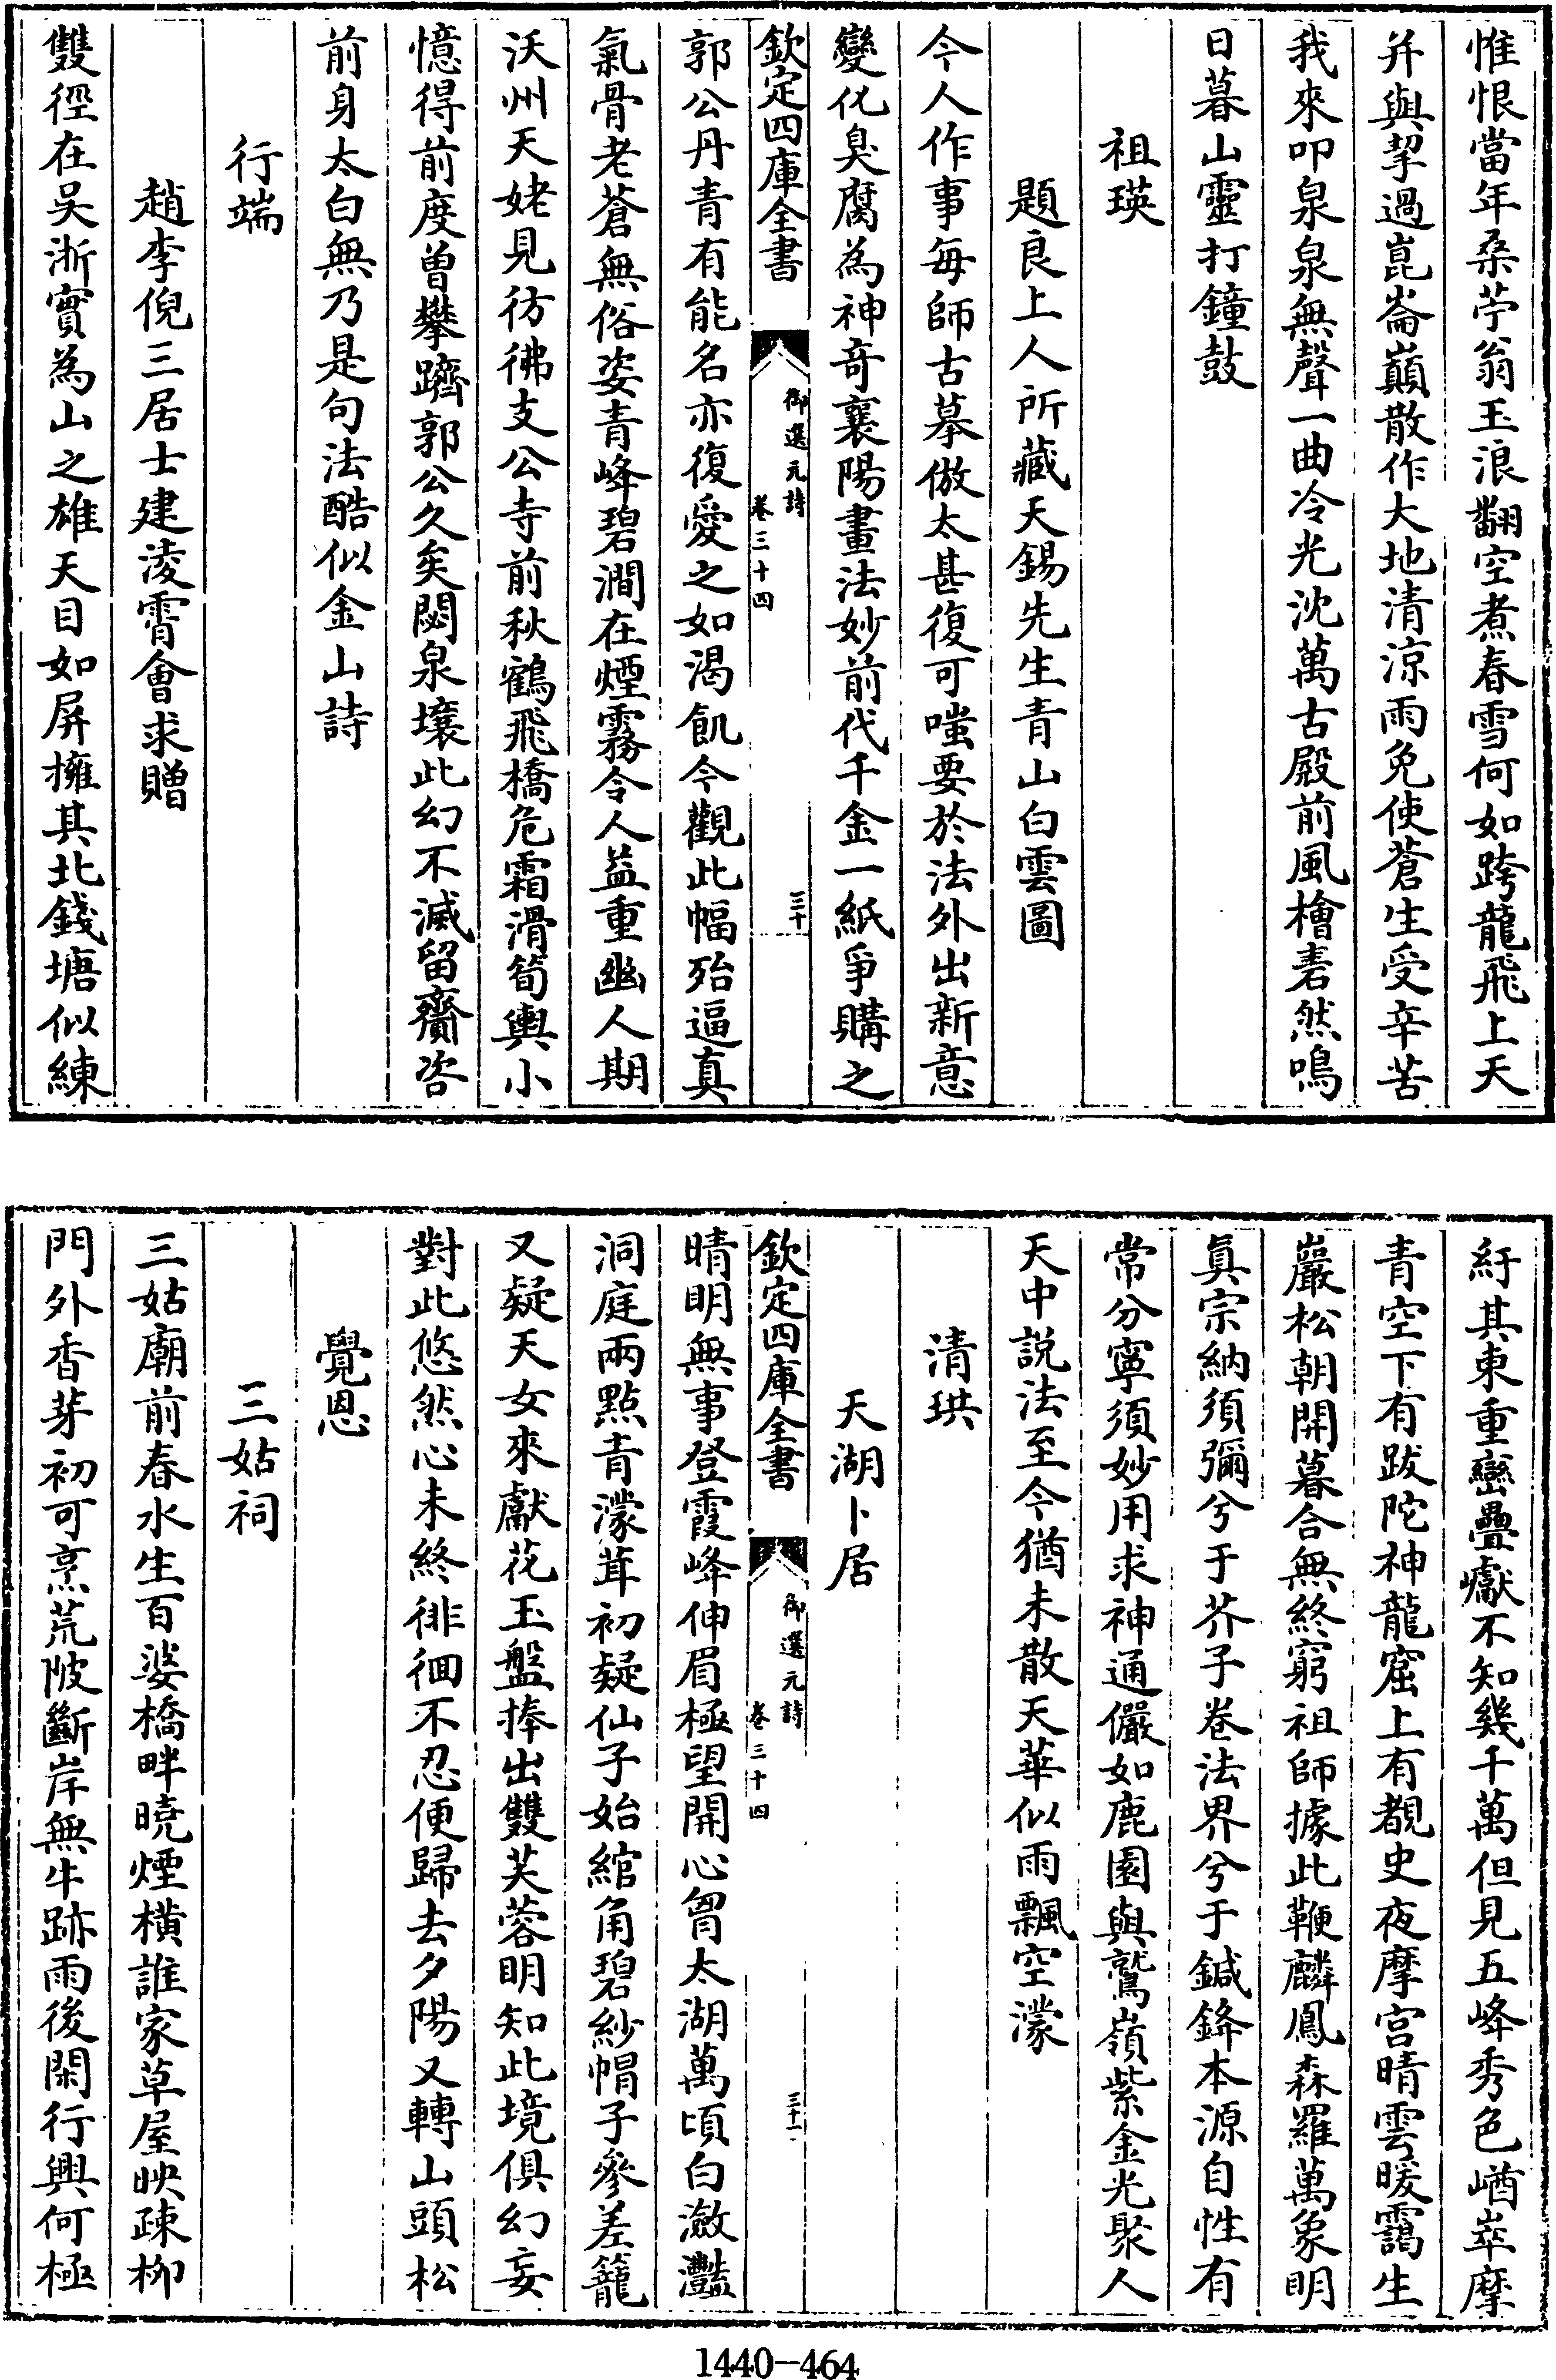 惟恨當年桑苧翁玉浪翻空煮春雪何如跨龍飛上天
并與挈過崑崙巔散作大地清涼雨免使蒼生受辛苦
我來叩泉泉無聲一曲冷光沈萬古殿前風檜砉然鳴
日暮山靈打鐘鼓
祖瑛
題良上人所藏天錫先生青山白雲圖
今人作事每師古摹倣太甚復可嗤要於法外出新意
變化臭腐為神奇襄陽畫法妙前代千金一紙爭購之
欽定四庫全書
御選元詩
卷三十四
三十
郭公丹青有能名亦復愛之如渴飢今觀此幅殆逼真
氣骨老蒼無俗姿青峰碧澗在煙霧令人益重幽人期
沃州天姥見彷彿支公寺前秋鶴飛橋危霜滑筍輿小
憶得前度曽攀躋郭公久矣閟泉壤此幻不滅留齎咨
前身太白無乃是句法酷似金山詩
行端
趙李倪三居士建淩霄會求贈
雙徑在吳浙實為山之雄天目如屏擁其北錢塘似練
紆其東重巒疊巘不知幾千萬但見五峰秀色崷崒摩
青空下有跋陀神龍窟上有覩史夜摩宫晴雲暖靄生
巖松朝開暮合無終窮祖師據此鞭麟鳳森羅萬象明
眞宗納須彌兮于芥子卷法界兮于鍼鋒本源自性有
常分寧須妙用求神通儼如鹿園與鷲嶺紫金光聚人
天中説法至今猶未散天華似雨飄空濛
清珙
天湖卜居
欽定四庫全書
御選元詩
卷三十四
三十一
晴明無事登霞峰伸眉極望開心胷太湖萬頃白瀲灩
洞庭兩點青濛茸初疑仙子始綰角碧紗帽子參差籠
又疑天女來獻花玉盤捧出雙芙蓉明知此境俱幻妄
對此悠然心未終徘徊不忍便歸去夕陽又轉山頭松
覺恩
三姑祠
三姑廟前春水生百婆橋畔曉煙横誰家草屋映疎柳
門外香芽初可烹荒陂斷岸無牛跡雨後閑行興何極
1440-464